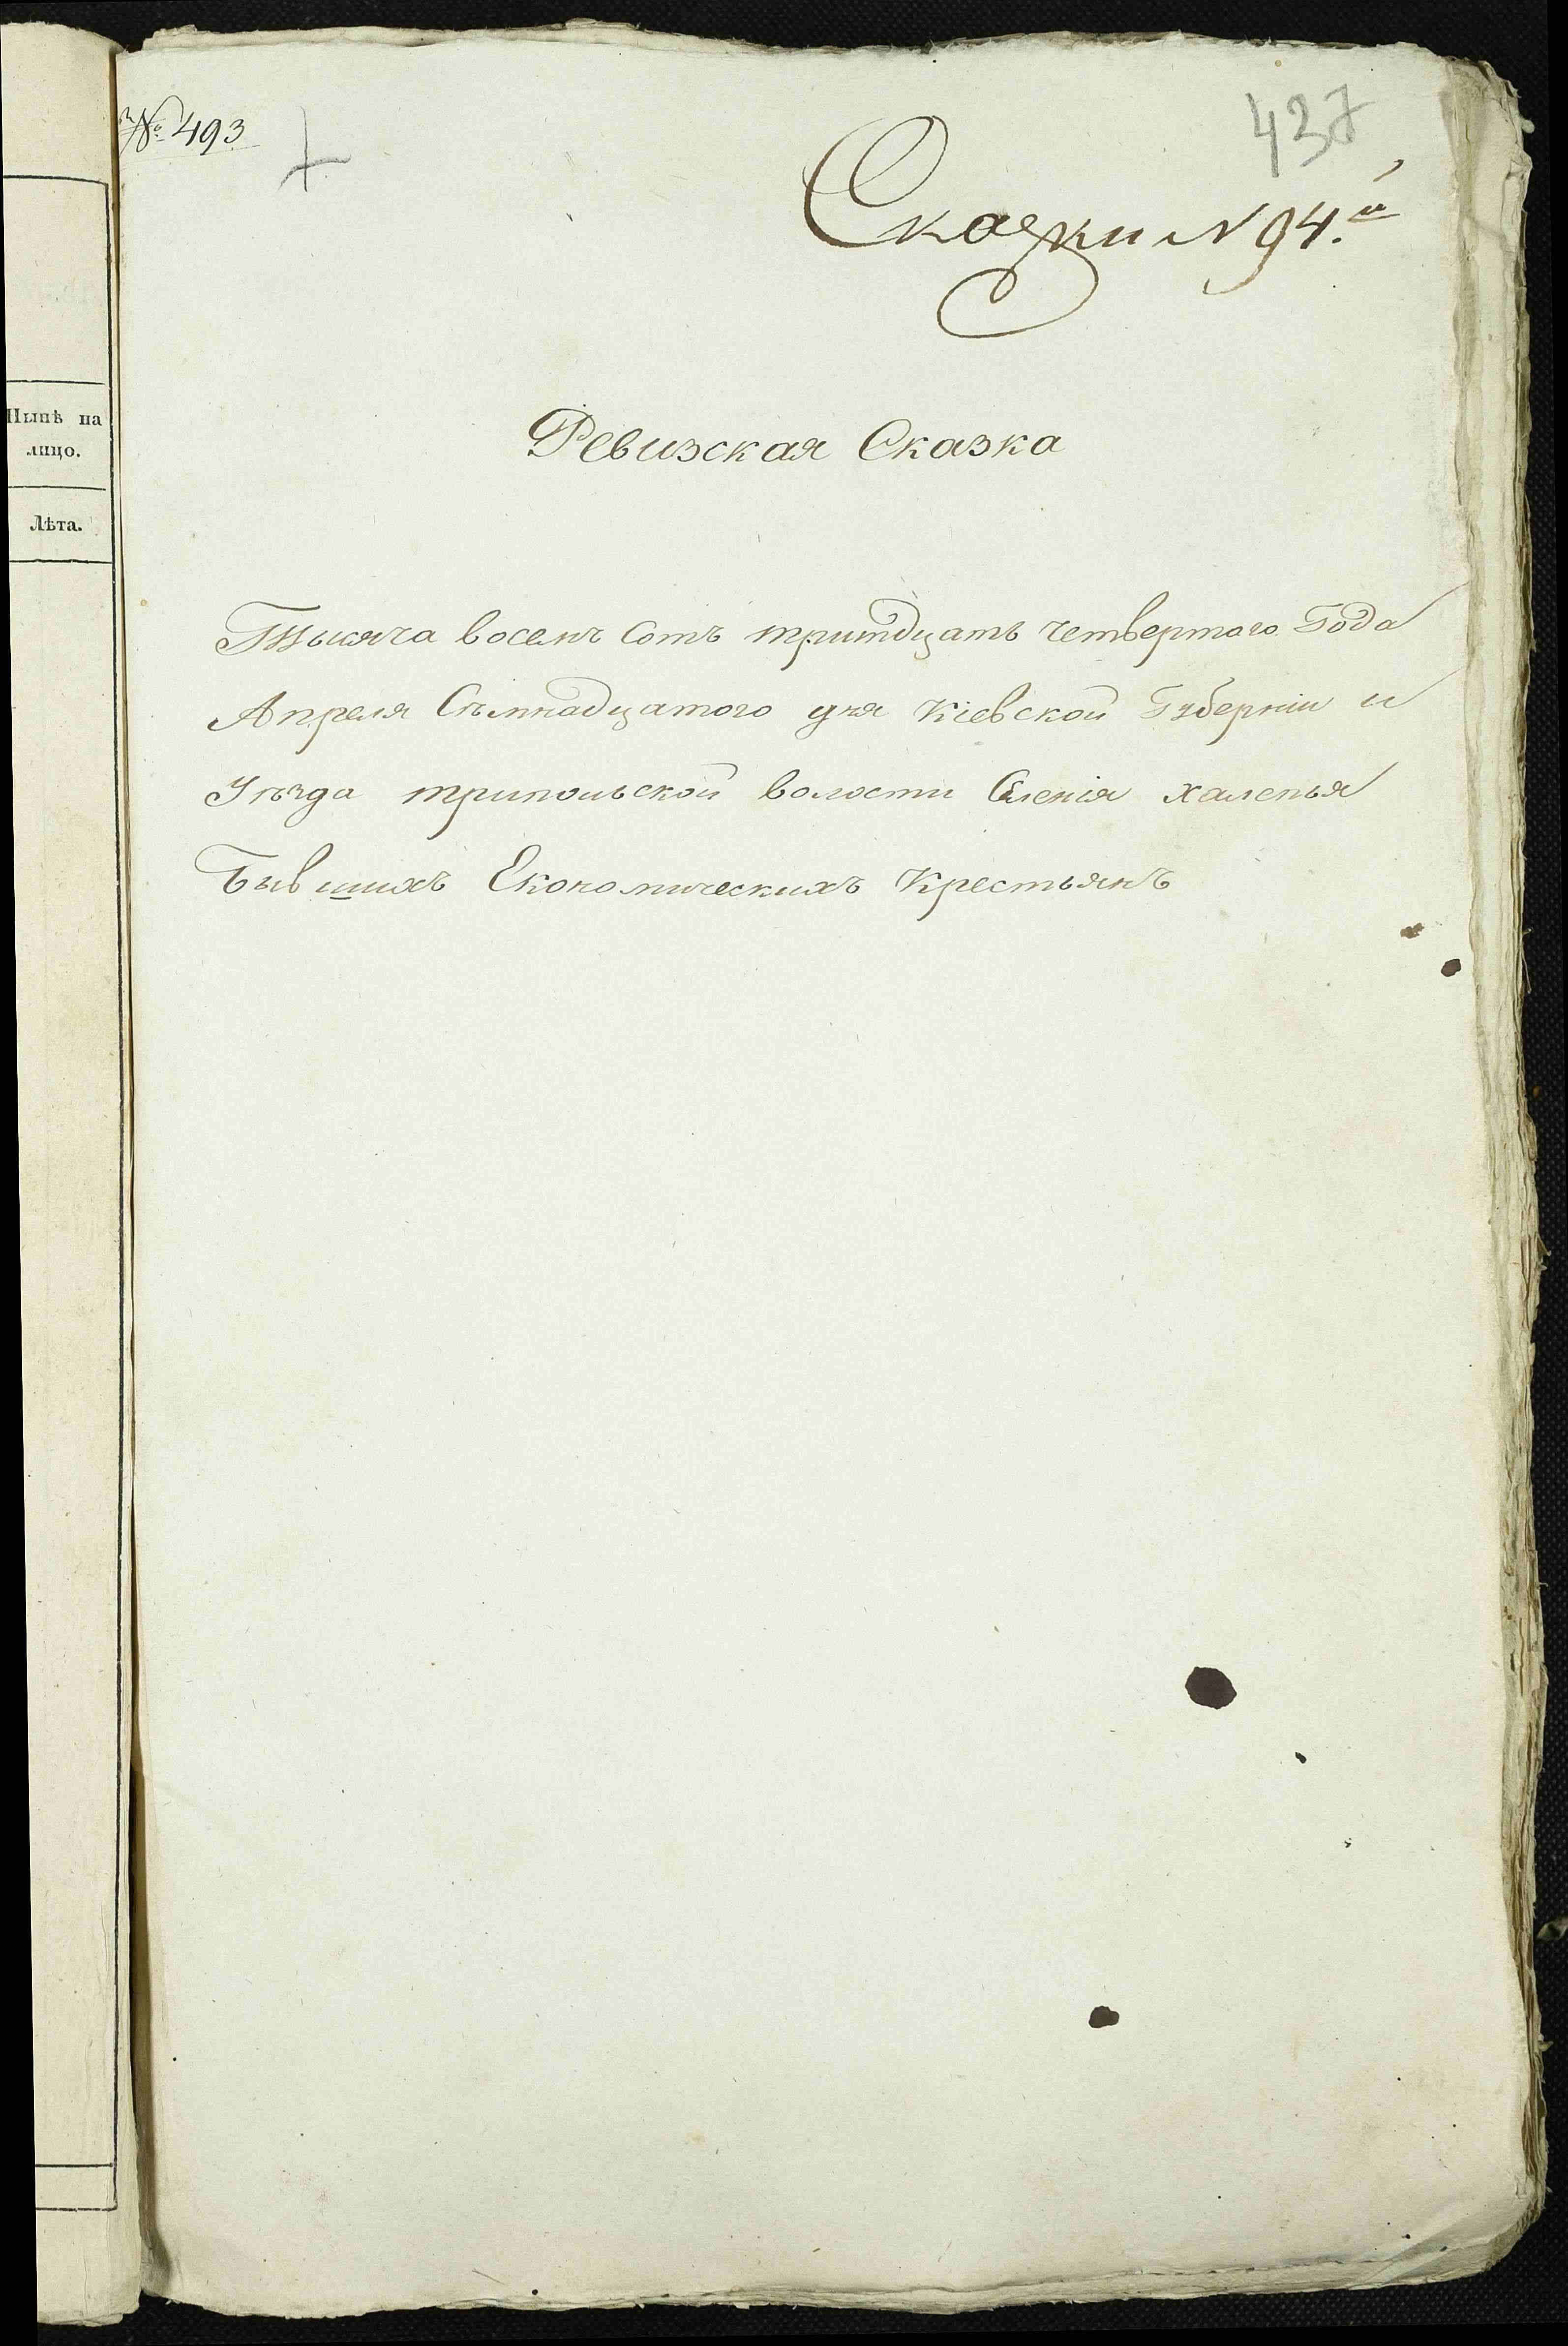 № 493
437
Сказки N 94.й
Ревизская Сказка
Тысяча восемъ Сотъ тритдцать четвертого Года
Апреля Съмнадцатого дня Кіевской Губерніи и
Уѣзда трипольской волости Селенія халепья
Бывшихъ Економическихъ Крестьянъ
Нынѣ на
лицо.
Лѣта.